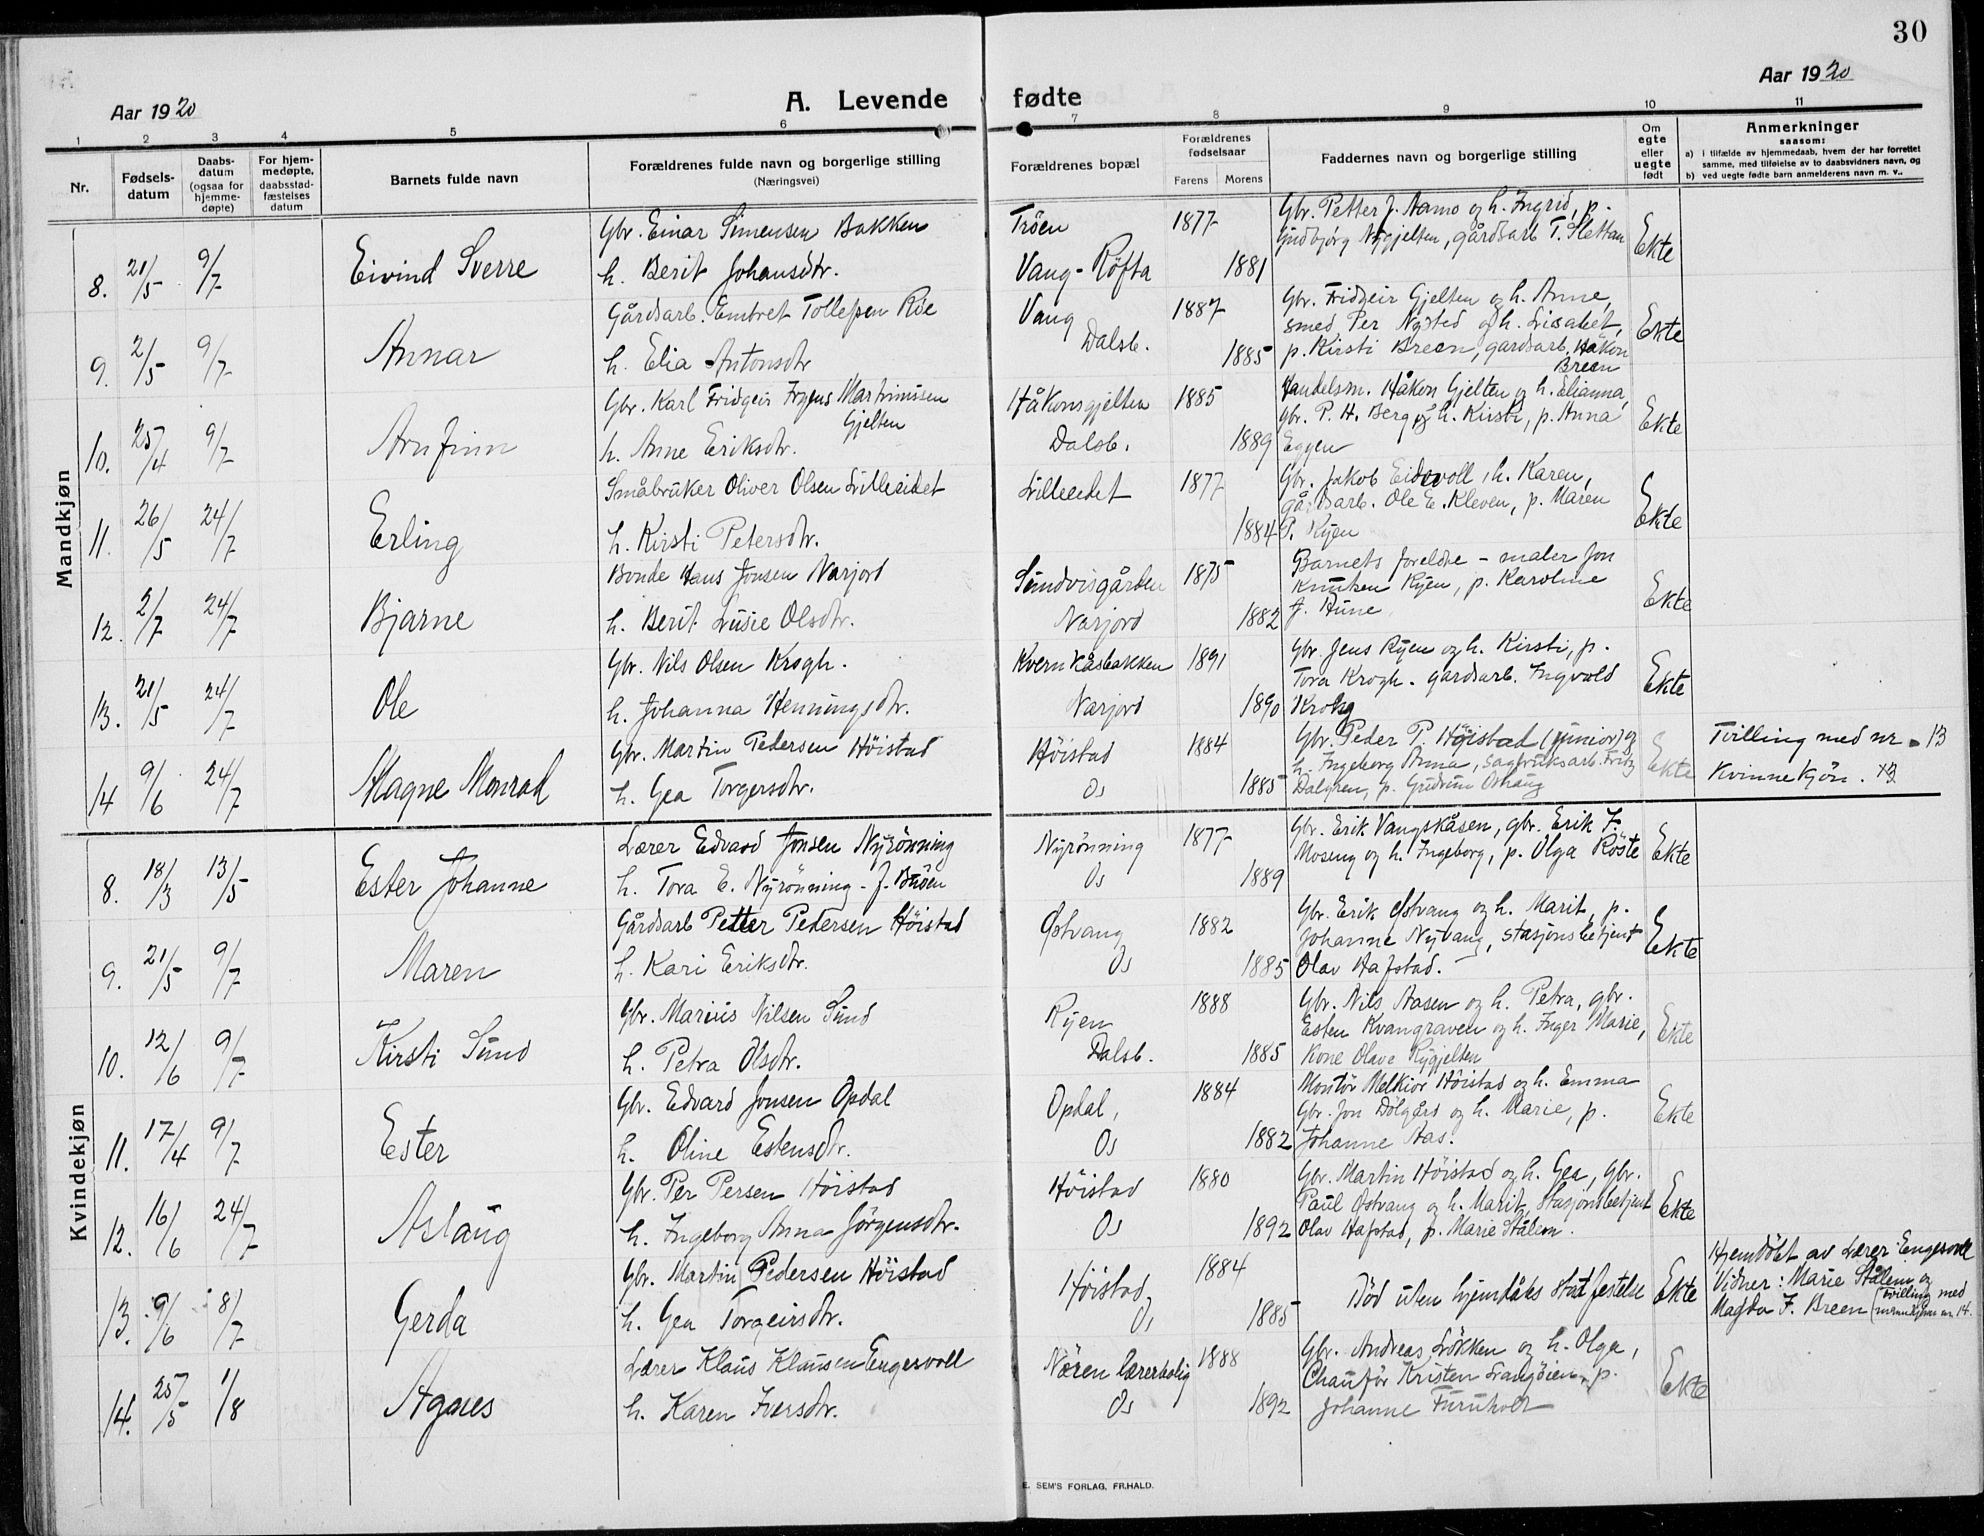 30
Aar 1920
A. Levende fødte
Aar 1920
1 2 3 4 5 6 7 8 9 10 11
Nr.
Fødsels-
datum
Daabs-
datum
(ogsaa for
hjemme-
døpte)
For hjem-
medøpte,
daabsstad-
fæstelses
datum
Barnets fulde navn
Forældrenes fulde navn og borgerlige stilling
(Næringsvei)
Forældrenes bopæl
Forældrenes
fødselsaar
Farens Morens
Faddernes navn og borgerlige stilling
Om
egte
eller
uegte
født
Anmerkninger
saasom:
a) i tilfælde av hjemmedaab, hvem der har forrettet
samme, med tilføielse av to daabsvidners navn, og
b) ved uegte fødte barn anmelderens navn m. v..
Mandkjøn
8. 21/5 9/7 Eivind Sverre
Gbr. Einar Simensen Bakken
h. Berit Johansdtr.
Tröen
Vang - Röfta
1877
1881
Gbr. Petter J. Aamo og h. Ingrid, p.
Gudbjørg Nygjelten, gårdsarb. T. Slettan
Ekte
9. 2/5 9/7 Annar
Gårdsarb. Embret Tollefsen Röe
h. Elia Antonsdtr
Vang
Dalsb.
1887
1885
Gbr. Fridgeir Gjelten og h. Anne,
smed Per Nysted og h. Lisabet,
p. Kirsti Breen, gardsarb. Håkon
Breen
Ekte
10. 25/4 9/7 Arnfinn
Gbr. Karl Fridgeir Martinussen
Gjelten
h. Anne Eriksdtr.
Håkonsgjelten
Dalsb.
1885
1889
Handelsm. Håkon Gjelten og h. Elianna,
Gbr. P. H. Berg og h. Kirsti, p. Anna
Eggen
Ekte
11. 26/5 24/7 Erling
Småbruker Oliver Olsen Lilleeidet
h. Kirsti Petersdtr.
Lilleeidet
1877
1884
Gbr. Jakob Eidsvoll, h. Karen,
gårdsarb. Ole E. Kleven, p. Maren
P. Ryen
Ekte
12. 2/7 24/7 Bjarne
Bonde Hans Jonsen Narjord
h. Berit Lusie Olsdtr.
Sundvisgården
Narjord
1875
1882
Barnets foreldre - maler Jon
Knutsen Ryen, p. Karoline
J. Hune
Ekte
13. 21/5 24/7 Ole
Gbr. Nils Olsen Krogh.
h. Johanna Henningsdtr.
Kvernkåsbakken
Narjord
1891
1890
Gbr. Jens Ryen og h. Kirsti, p.
Tora Krogh. gardsarb. Ingvald
Krohg
Ekte
14 9/6 24/7 Magne Monrad
Gbr. Martin Pedersen Höistad
h. Gea Torgersdtr.
Höistad
Os
1884
1885
Gbr. Peder P. Höistad (junior) og
h. Ingeborg Anna, sagbruksarb. Fritz
Dalgren, p. Gudrun Oshaug
Ekte
Tvilling med nr. 13
Kvinnekjön.
Kvindekjøn
8. 18/3 13/5 Ester Johanne
Lærer Edvard Jonsen Nyrönning
h. Tora E. Nyrönning - f. Buöen
Nyrönning
Os
1877
1889
Gbr. Erik Vangskåsen, gbr. Erik F.
Moseng og h. Ingeborg, p. Olga Röste
Ekte
9. 21/5 9/7 Maren
Gårdsarb Petter Pedersen Höistad
h. Kari Eriksdtr.
Østvang
Os
1882
1885
Gbr. Erik Østvang og h. Marit, p.
Johanne Nyvang, stasjonsbetjent
Olav Hafstad.
Ekte
10. 12/6 9/7 Kirsti Sund
Gbr. Marius Nilsen Sund
h. Petra Olsdtr.
Ryen
Dalsb.
1888
1885
Gbr. Nils Aasen og h. Petra, gbr.
Esten Kvangraven og h. Inger Marie,
Kone Olave Rygjelten
Ekte
11. 17/4 9/7 Ester
Gbr. Edvard Jonsen Opdal
h. Oline Estensdtr.
Opdal,
Os
1884
1882
Montör Melkior Höistad og h. Emma
Gbr. Jon Dölgård og h. Marie, p.
Johanne Aas.
Ekte
12. 16/6 24/7 Aslaug
Gbr. Per Persen Höistad
h. Ingeborg Anna Jörgensdtr.
Höistad
Os
1880
1892
Gbr. Martin Höistad og h. Gea, Gbr.
Paul Østvang og h. Marit, stasjonsbetjent
Olav Hafstad, p. Marie Stålem.
Ekte
13. 9/6 8/7 Gerda
Gbr. Martin Pedersen Höistad
h. Gea Torgeirsdtr.
Höistad
Os
1884
1885
Död uten hjemdåbs stadfestelse
Ekte
Hjemdöbt av Lærer Engesvoll
Vidner: Marie Stålem og
Magda F. Breen (tvilling med
mannkjøn nr. 14.
14. 25/5 1/8 Agnes
Lærer Klaus Klausen Engesvoll
h. Karen Iversdtr.
Nören lærerbolig
Os
1888
1892
Gbr. Andreas Lökken og h. Olga,
Chauför Kristen Langöien, p.
Johanne Furuholt
Ekte
E. SEM'S FORLAG, FR.HALD.